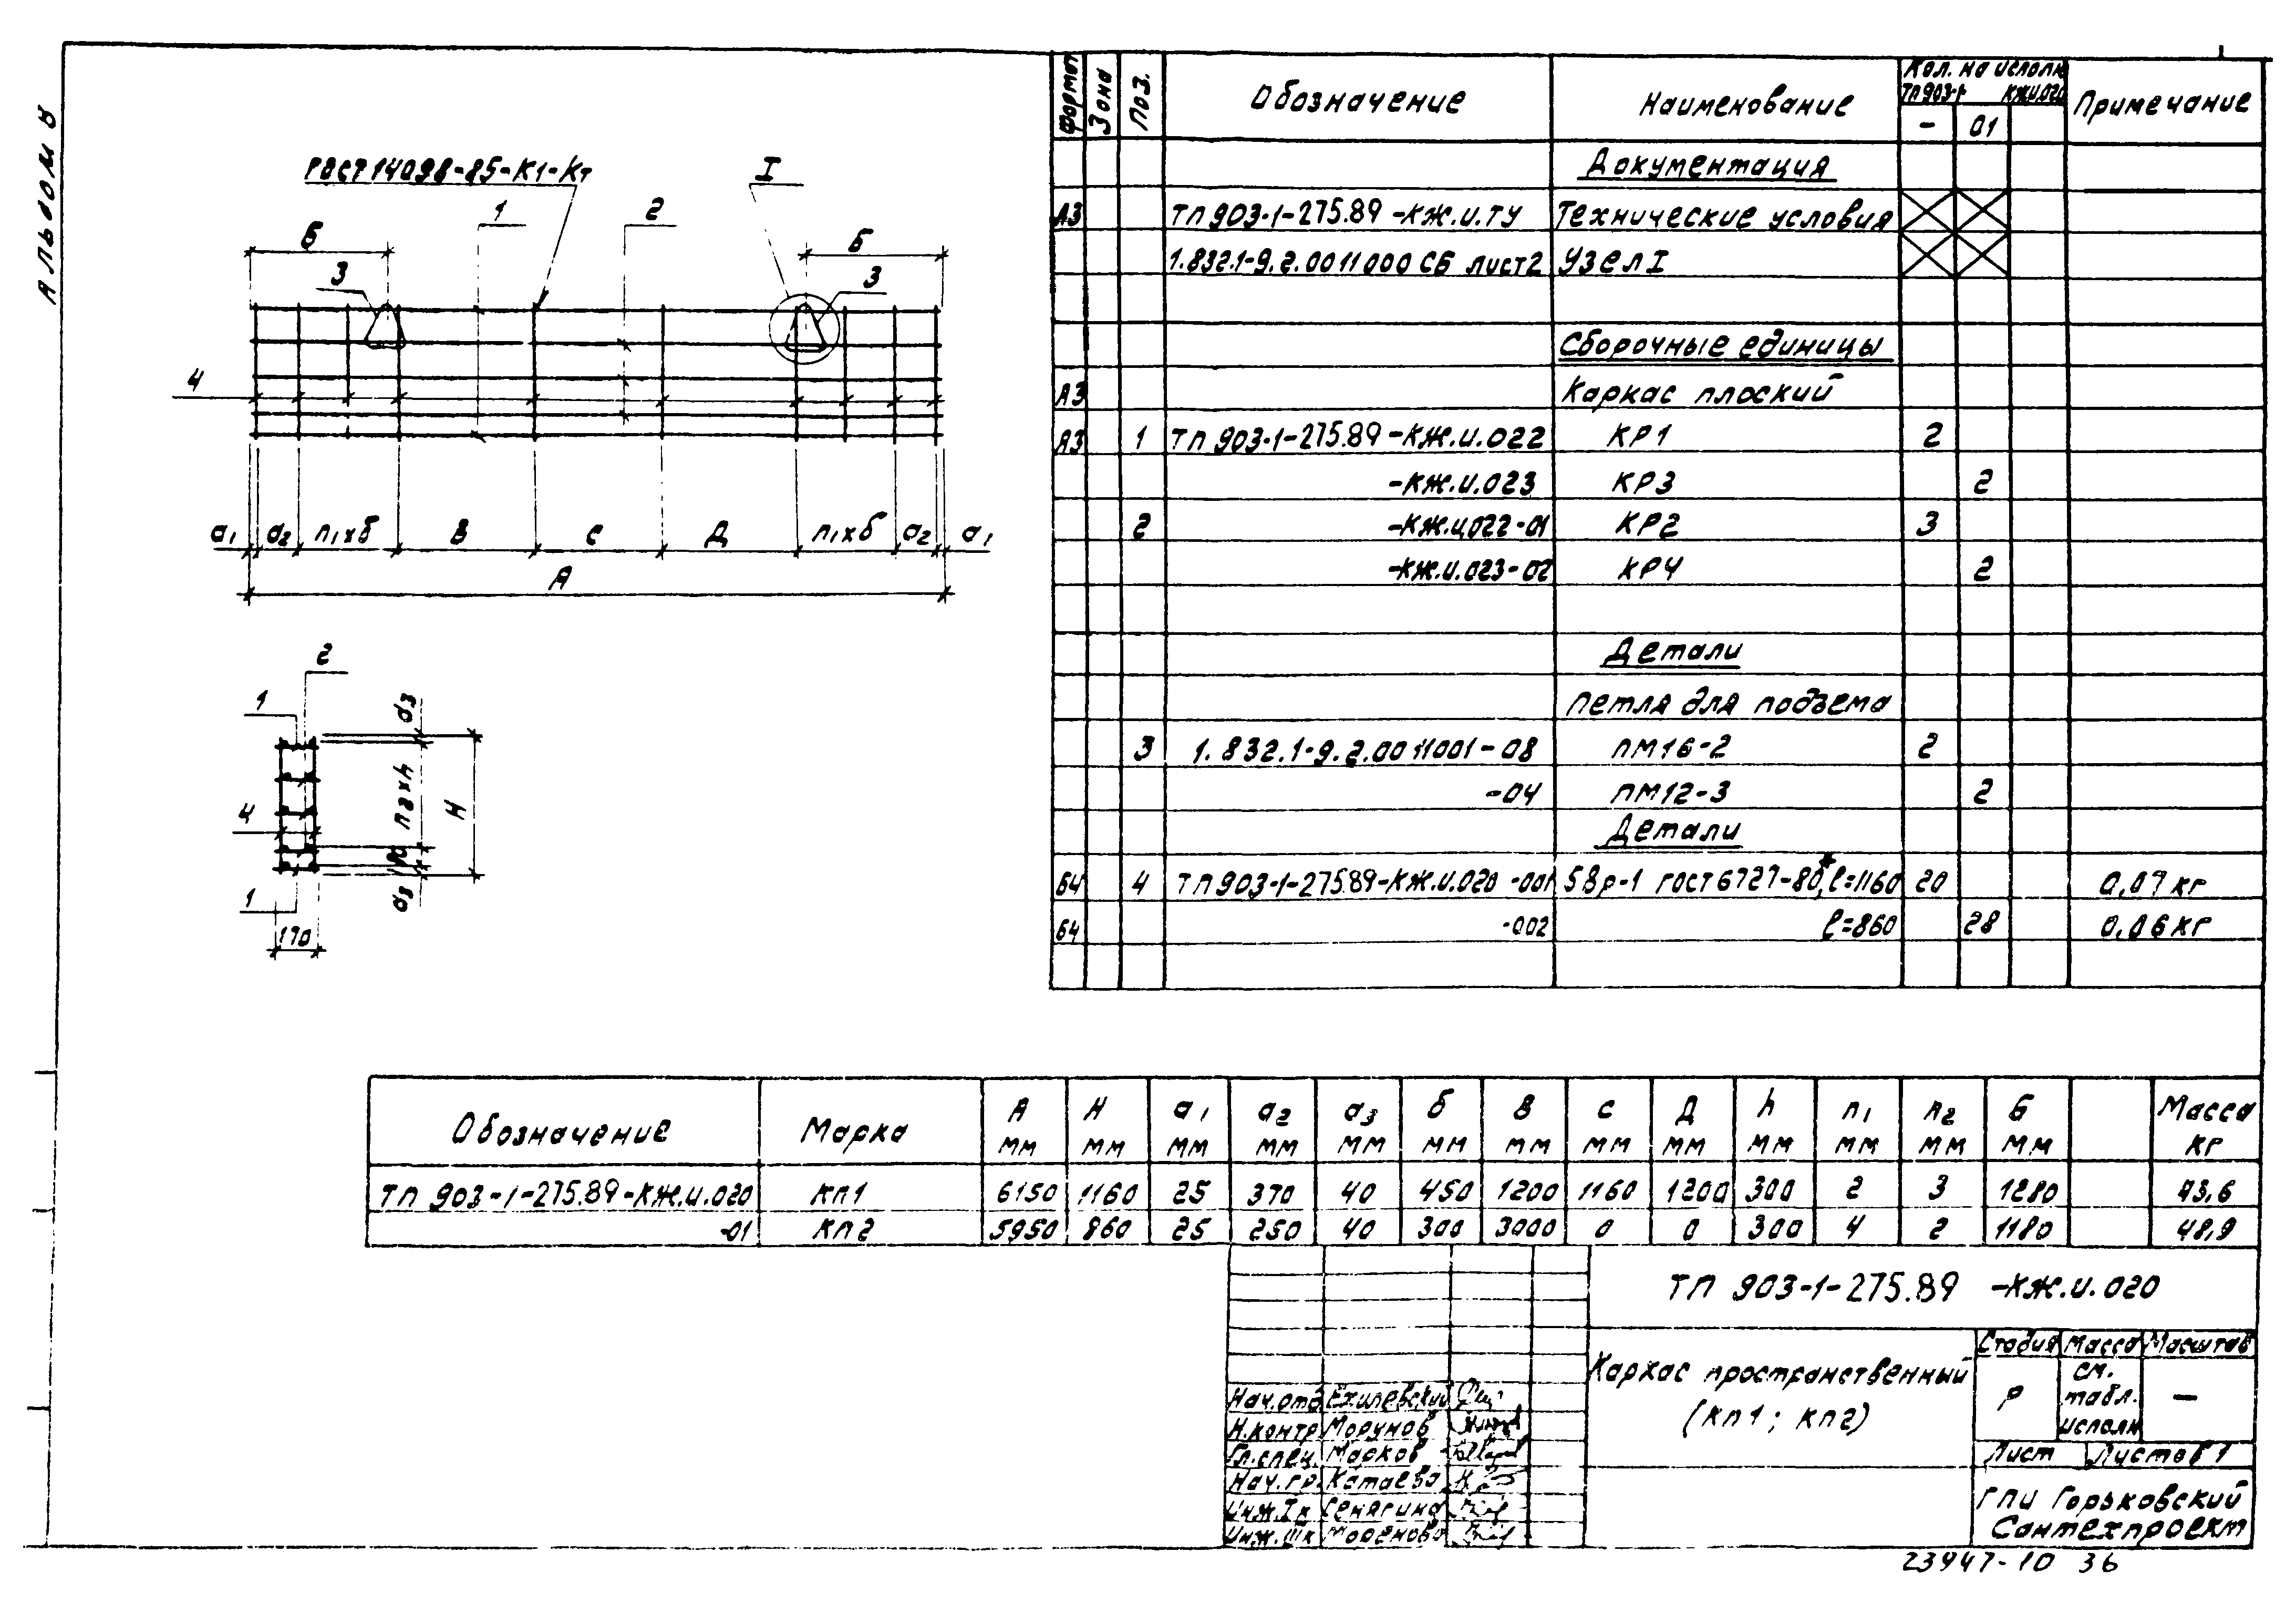 Альбом 8
ГОСТ 14098-85-К1-Кт
I
1
2
Б
Б
3
3
4
а1 а2 n1xб В С Д n1xб а2 а1
А
2
1
4
1
а3
n2xh
Н
а3
170
Формат Зона Поз. Обозначение Наименование Кол. на исполн ТП903-1 КЖИ.020 Примечание
- 01
Документация
А3 ТП903-1-275.89-КЖ.И.ТУ Технические условия
1.832.1-9.2.0011000 СБ лист2 Узел I
Сборочные единицы
А3 Каркас плоский
А3 1 ТП 903-1-275.89-КЖ.И.022 КР1 2
-КЖ.И.023 КР3 2
2 -КЖ.И.022-01 КР2 3
-КЖ.И.023-02 КР4 2
Детали
Петля для подъема
3 1.832.1-9.2.0011001-08 ПМ16-2 2
-04 ПМ12-3 2
Детали
Б4 4 ТП903-1-275.89-КЖ.И.020-001 5Вр-1 ГОСТ6727-80*, ℓ=1160 20 0,07 кг
Б4 -002 ℓ=860 28 0,06 кг
Обозначение Марка А мм Н мм а1 мм а2 мм а3 мм б мм В мм С мм Д мм h мм n1 мм n2 мм Б мм Масса кг
ТП 903-1-275.89-КЖ.И.020 КП1 6150 1160 25 370 40 450 1200 1160 1200 300 2 3 1280
-01 КП2 5950 860 25 250 40 300 3000 0 0 300 4 2 1180 48,9
ТП 903-1-275.89 -КЖ.И.020
Каркас пространственный
(КП1; КП2)
Стадия Масса Масштаб
Р см. табл. исполн —
Лист Листов 1
ГПИ Горьковский
Сантехпроект
Нач.отд. Ехилевский
Н.контр Морунов
Гл.спец. Марков
Нач.гр. Катаева
Инж.Iк Сенягина
Инж.IIIк
23947-10 36